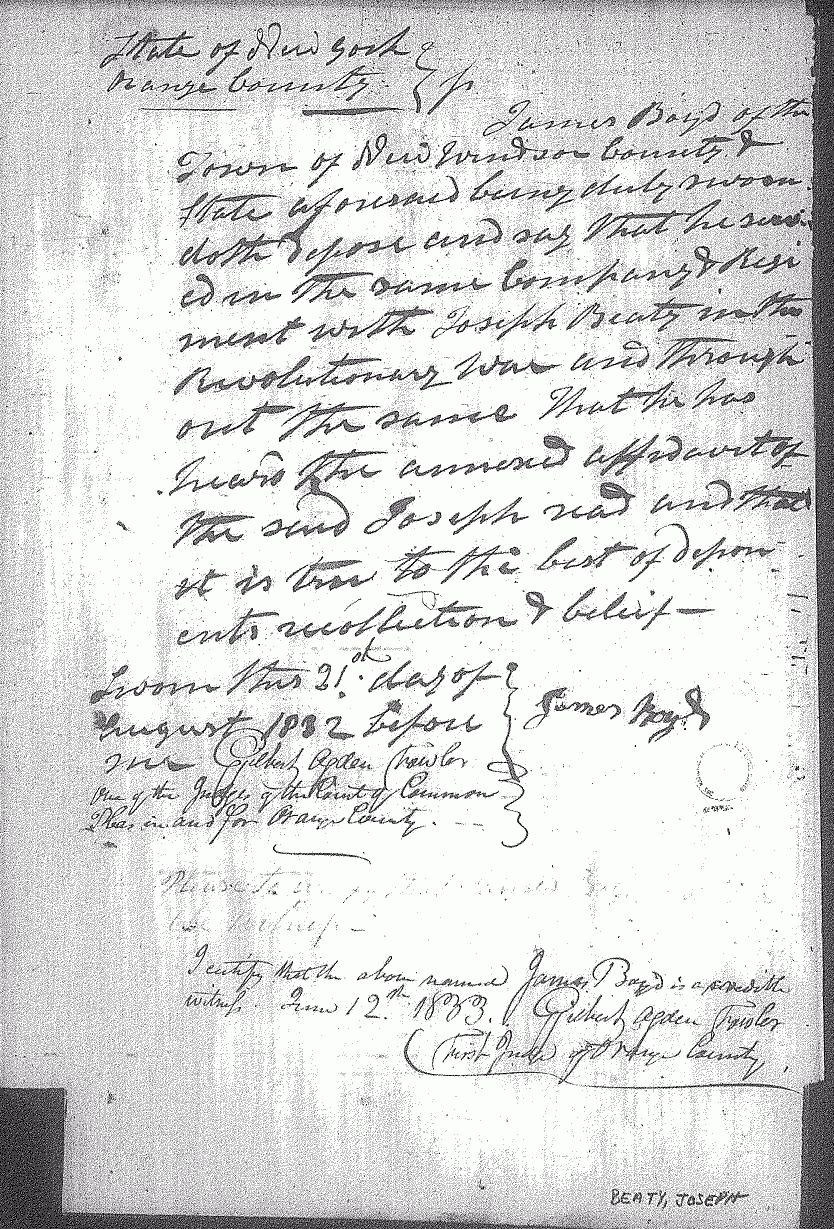 State of New York
Orange County } ss
James Boyd of the
Town of New Windsor County &
State aforesaid being duly sworn
doth depose and say that he serv-
ed in the same Company & Regi
ment with Joseph Beaty in the
Revolutionary War and through
out the same That he has
heard the annexed affidavit of
the said Joseph read and that
it is true to the best of depon
ents recollection & belief —
Sworn this 21st day of
August 1832 before
me Gilbert Ogden Fowler
One of the Judges of the Court of Common
Pleas in and for Orange County.
James Boyd
Please to
I certify that the above named James Boyd is a credible
witness. June 12th 1833. Gilbert Ogden Fowler
First Judge of Orange County.
BEATY, JOSEPH